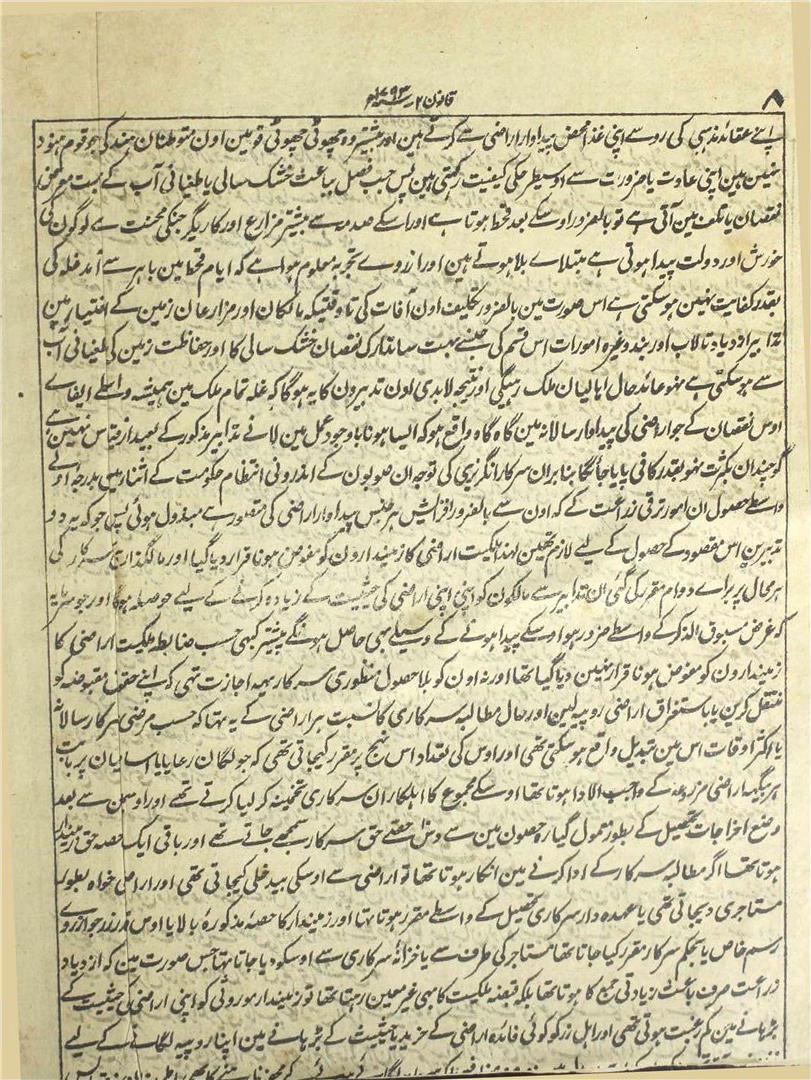 ۸
قانون ۲ سنہ ۱۷۹۳ء
اپنے عقائد مذہبی کی رو سے اپنی غذا محض پیداوار اراضی سے کرتے ہین اور بیشتر وہ چھوٹی چھوٹی قومین اون متوطنان ہند کی جو قوم ہنود
نہین ہین اپنی عادت یا ضرورت سے اوسیطرحکی کیفیت رکھتی ہین پس جب فصل بباعث خشک سالی یا طغیانی آب کے بہت معرض
نقصان یا تلف مین آتی ہے تو بالضرور اوسکے بعد قحط ہوتا ہے اور اسکے صدمہ سے بیشتر مزارع اور کاریگر جنکی محنت سے لوگون کی
خورش اور دولت پیدا ہوتی ہے مبتلاے بلا ہوتے ہین اور ازروے تجربہ معلوم ہوا ہے کہ ایام قحط مین باہر سے آمد غلہ کی
بقدر کفایت نہین ہوسکتی ہے اس صورت مین بالضرور تکلیف اون آفات کی تاوقتیکہ مالکان اور مزارعان زمین کے اختیار مین
تدابیر ازدیاد تالاب اور بند وغیرہ امورات اس قسم کی جنسے بہت سا تدارک نقصان خشک سالی کا اور حفاظت زمین کی طغیانی آب
سے ہوسکتی ہے نہو عائد حال اہالیان ملک رہیگی اور نتیجہ لابدی اون تدبیرون کا یہ ہوگا کہ غلہ تمام ملک مین ہمیشہ واسطے ایفاے
اوس نقصان کے جو اراضی کی پیداوار سالانہ مین گاہ گاہ واقع ہو کہ ایسا ہونا باوجود عمل مین لانے تدابیر مذکور کے بعید از قیاس نہین ہے
گو چندان بکثرت نہو بقدر کافی پایا جائگا بنا بران سرکار انگریزی کی توجہ ان صوبون کے اندرونی انتظام حکومت کے اثنا مین بدرجہ اولے
واسطے حصول ان امور ترقی زراعت کے کہ اون سے بالضرور افزایش ہر جنس پیداوار اراضی کی متصور ہے مبذول ہوئی پس جو کہ یہ دو
تدبیرین اس مقصود کے حصول کے لیے لازم تھین لہذا ملکیت اراضی کا زمیندارون کو مفوض ہونا قرار دیا گیا اور مالگذاری سرکار کی
ہر محال پر براے دوام مقرر کی گئی ان تدابیر سے مالکون کو اپنی اپنی اراضی کی حیثیت کے زیادہ کرنے کے لیے حوصلہ ہوگا اور جو سرمایہ
کہ غرض مسبوق الذکر کے واسطے ضرور ہو اوسکے پیدا ہونے کے وسیلے بھی حاصل ہونگے پیشتر کبھی حسب ضابطہ ملکیت اراضی کا
زمیندارون کو مفوض ہونا قرار نہین دیا گیا تھا اور نہ اون کو بلا حصول منظوری سرکار یہہ اجازت تہی کہ اپنے حقوق مقبوضہ کو
منتقل کرین یا باستغراق اراضی روپیہ لین اور حال مطالبہ سرکاری کا نسبت ہر اراضی کے یہ تہا کہ حسب مرضی سرکار سالانہ
یا اکثر اوقات اس مین تبدیل واقع ہوسکتی تھی اور اوس کی تعداد اس نہج پر مقرر کیجاتی تھی کہ جو لگان رعایا یا اسامیان پر بابت
ہر بیگہہ اراضی مزروعہ کے واجب الادا ہوتا تھا اوسکے مجموع کا اہلکاران سرکاری تخمینہ کرلیا کرتے تھے اور اوسمین سے بعد
وضع اخراجات تحصیل کے بطور معمول گیارہ حصون مین سے دس حصے حق سرکار سمجھے جاتے تھے اور باقی ایک حصہ حق زمیندار
ہوتا تھا اگر مطالبہ سرکار کے ادا کرنے مین انکار ہوتا تھا تو اراضی سے اوسکی بیدخلی کیجاتی تھی اور اراضی خواہ بطور
مستاجری دیجاتی تھی یا عہدہ دار سرکاری تحصیل کے واسطے مقرر ہوتا تہا اور زمیندار کا حصہ مذکورہ بالا یا اوس قدر زر جو ازروے
رسم خاص یا بحکم سرکار مقرر کیا جاتا تھا مستاجر کی طرف سے یا خزانہ سرکاری سے اوسکو دیا جاتا تہا جس صورت مین کہ ازدیاد
زراعت صرف باعث زیادتی جمع کا ہوتا تھا بلکہ قبضہ ملکیت کا بھی غیر معین رہتا تھا تو زمیندار موروثی کو اپنی اراضی کی حیثیت کے
بڑہانے مین کم رغبت ہوتی تھی اور اہل زر کو کوئی فائدہ اراضی کے خرید یا حیثیت کے بڑہانے مین اپنا روپیہ لگانے کے لیے